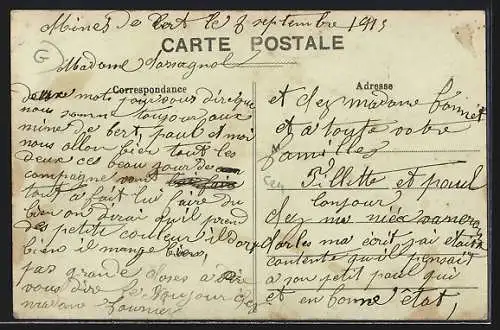 Mines de Bert le 8 septembre 1913
CARTE POSTALE
Madame Passagnol
Correspondance
deux mots pour vous dire que
nous somme toujour aux
mine de bert, paul et moi
nous allon bien tout les
deux ces beau jour de
compagne vont
tout a fait lui faire du
bien on dirai qu'il prend
des petite couleur il dor
bien il mange bien,
pas grande choses a
vous dire le Bonjour chez
madame Fournier
Adresse
et chez madame
et a toute votre
famille
Fillette et paul
bonjour
chez ma niéce
Charles ma écrit jai était
contente qu'il pensait
a son petit paul qui
et en bonne état,